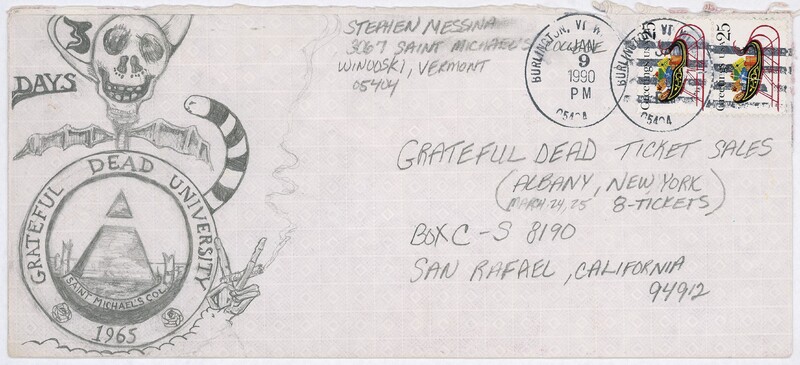 3
DAYS
GRATEFUL DEAD UNIVERSITY
SAINT MICHAEL'S COL.
1965
STEPHEN MESSINA
3067 SAINT MICHAEL'S COLLEGE
WINOOSKI, VERMONT
05404
BURLINGTON, VT
JAN
9
1990
PM
BURLINGTON, VT
25
Greetings
25
Greetings
GRATEFUL DEAD TICKET SALES
(ALBANY, NEW YORK
MARCH 24, 25 8-TICKETS)
BOX C-S 8190
SAN RAFAEL, CALIFORNIA
94912